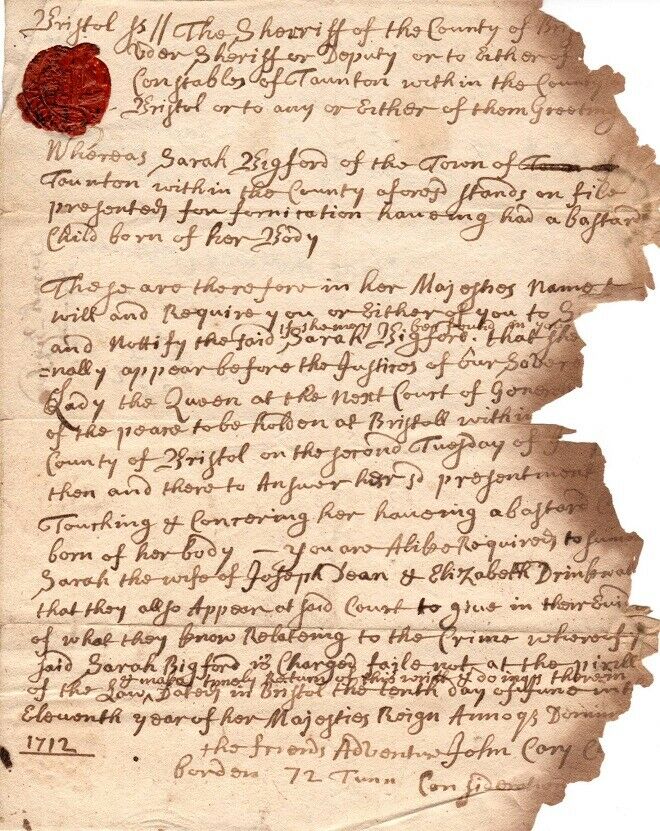 Bristol ss// The Sherriff of the County of Br
Vder Sheriff or Deputy or to Either of
Constables of Taunton within the County
Bristol or to any or Either of them Greeting
Whereas Sarah Bigford of the Town of
Taunton within the County aforesd stands on file
presented for fornication haveing had a bastard
Child born of her Body
These are therefore in her Majesties Name t
will and Require you or Either of you to S
if she may be found in yr
and Nottify the said Sarah Bigford. that she
=nally appear before the Justices of our Sover
Lady the Queen at the Next Court of Gener
of the peace to be holden at Bristoll within
County of Bristol on the second Tuesday of J
then and there to Answer her sd presentment
Touching & Concering her haveing a bastard
born of her body — You are Alike Required to sum
Sarah the wife of Joseph Jean & Elizabeth Drinkwat
that they allso Appear at said Court to give in their Evid
of what they know Relateing to the Crime whereof
said Sarah Bigford is Charged faile not at the perill
& make timely Return of this writ & doings therein
of the Law Dated in Bristol the tenth day of June in t
Eleventh year of her Majesties Reign Annoqs Domini
1712
the friends Adventure John Cary C
borden 72 Tunn Consider